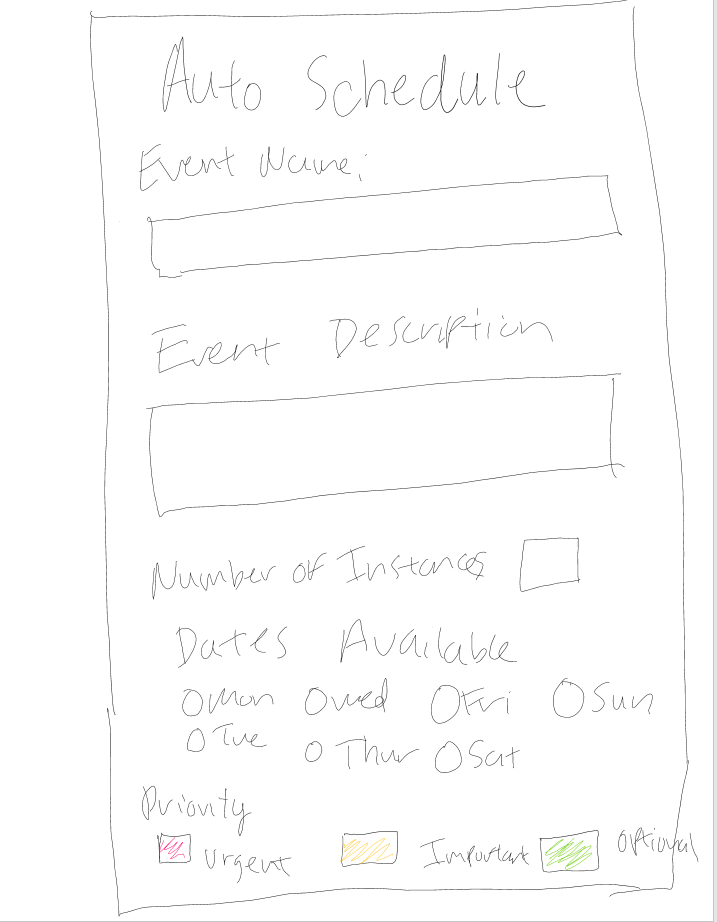 Auto Schedule
Event Name:
Event Description
Number of Instances
Dates Available
Mon Wed Fri Sun
Tue Thur Sat
Priority
Urgent Important Optional